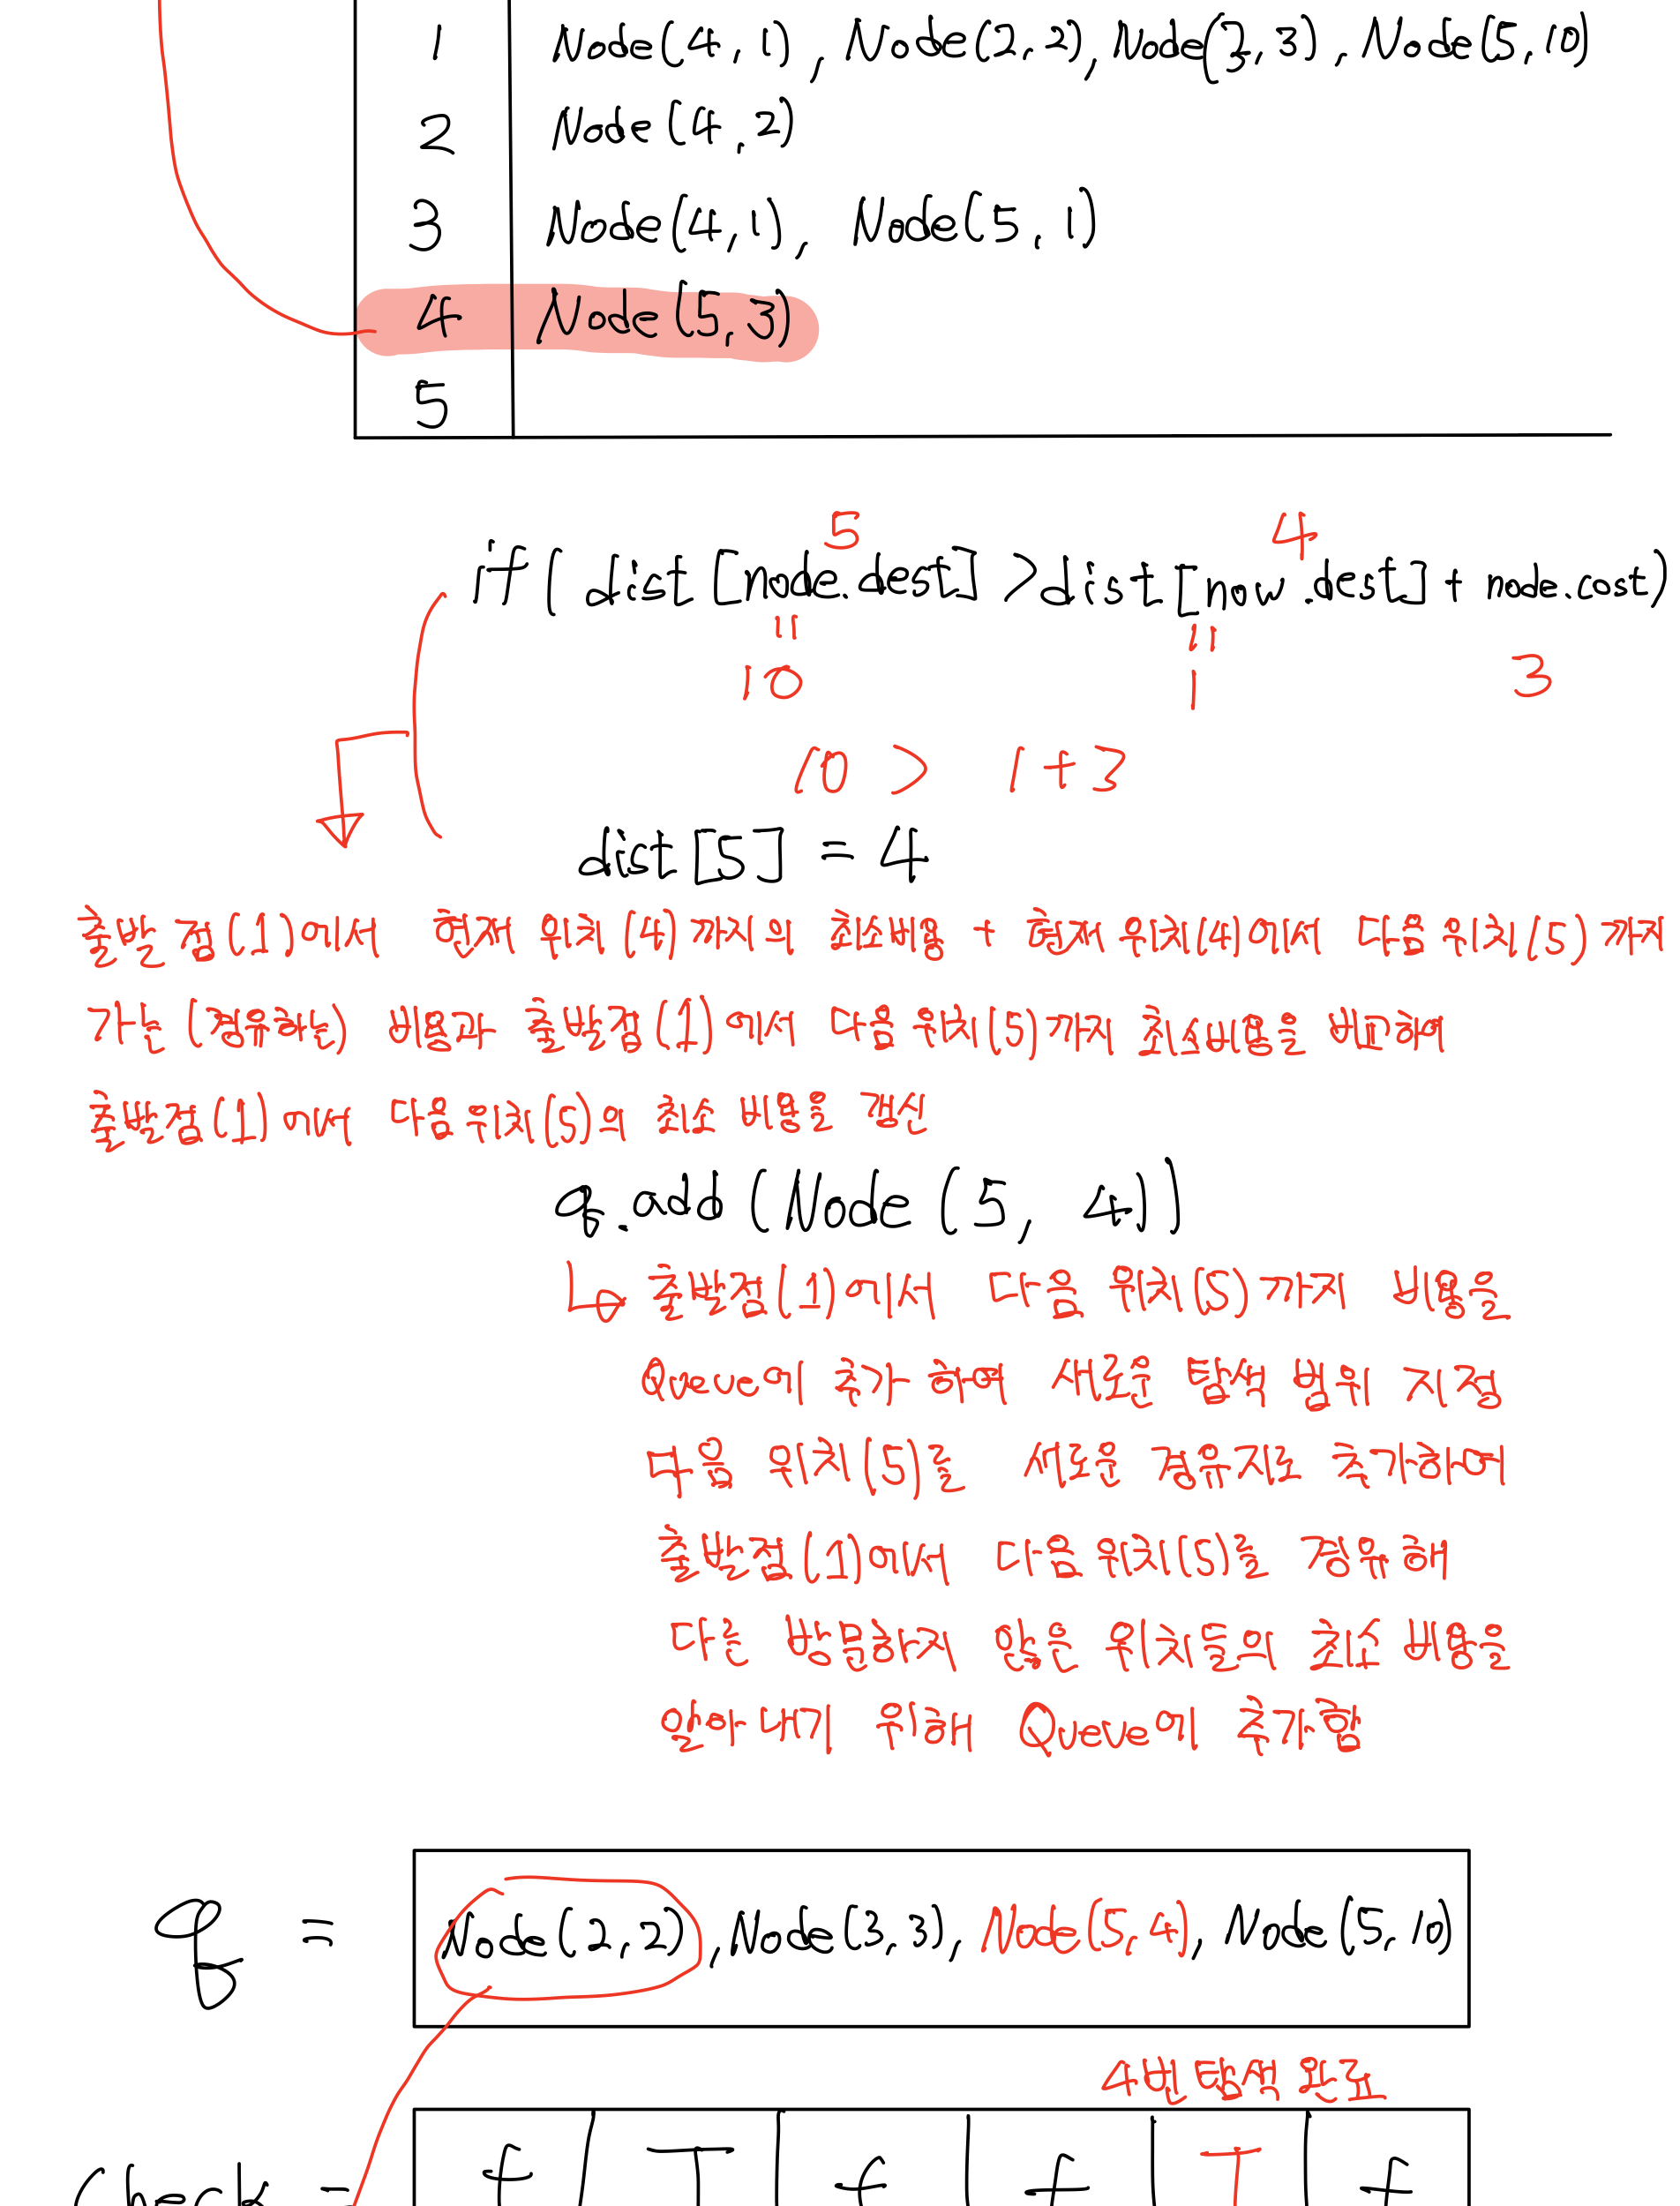 1 Node(4, 1), Node(2, 2), Node(3, 3), Node(5, 10)
2 Node(4, 2)
3 Node(4, 1), Node(5, 1)
4 Node(5, 3)
5
5 4
if( dist[node.dest] > dist[now.dest] + node.cost)
" "
10 1 3
10 > 1+3
dist[5] = 4
출발점(1)에서 현재 위치(4)까지의 최소비용 + 현재 위치(4)에서 다음 위치(5)까지
가는 (경유하는) 비용과 출발점(1)에서 다음 위치(5)까지 최소비용을 비교하여
출발점(1)에서 다음 위치(5)의 최소 비용을 갱신
q.add(Node(5, 4))
출발점(1)에서 다음 위치(5)까지 비용을
Queue에 추가하여 새로운 탐색 범위 지정
다음 위치(5)를 새로운 경유지로 추가하여
출발점(1)에서 다음 위치(5)를 경유해
다른 방문하지 않은 위치들의 최소 비용을
알아내기 위해 Queue에 추가함
q = Node(2, 2), Node(3, 3), Node(5, 4), Node(5, 10)
4번 탐색 완료
Check = f T f f T f